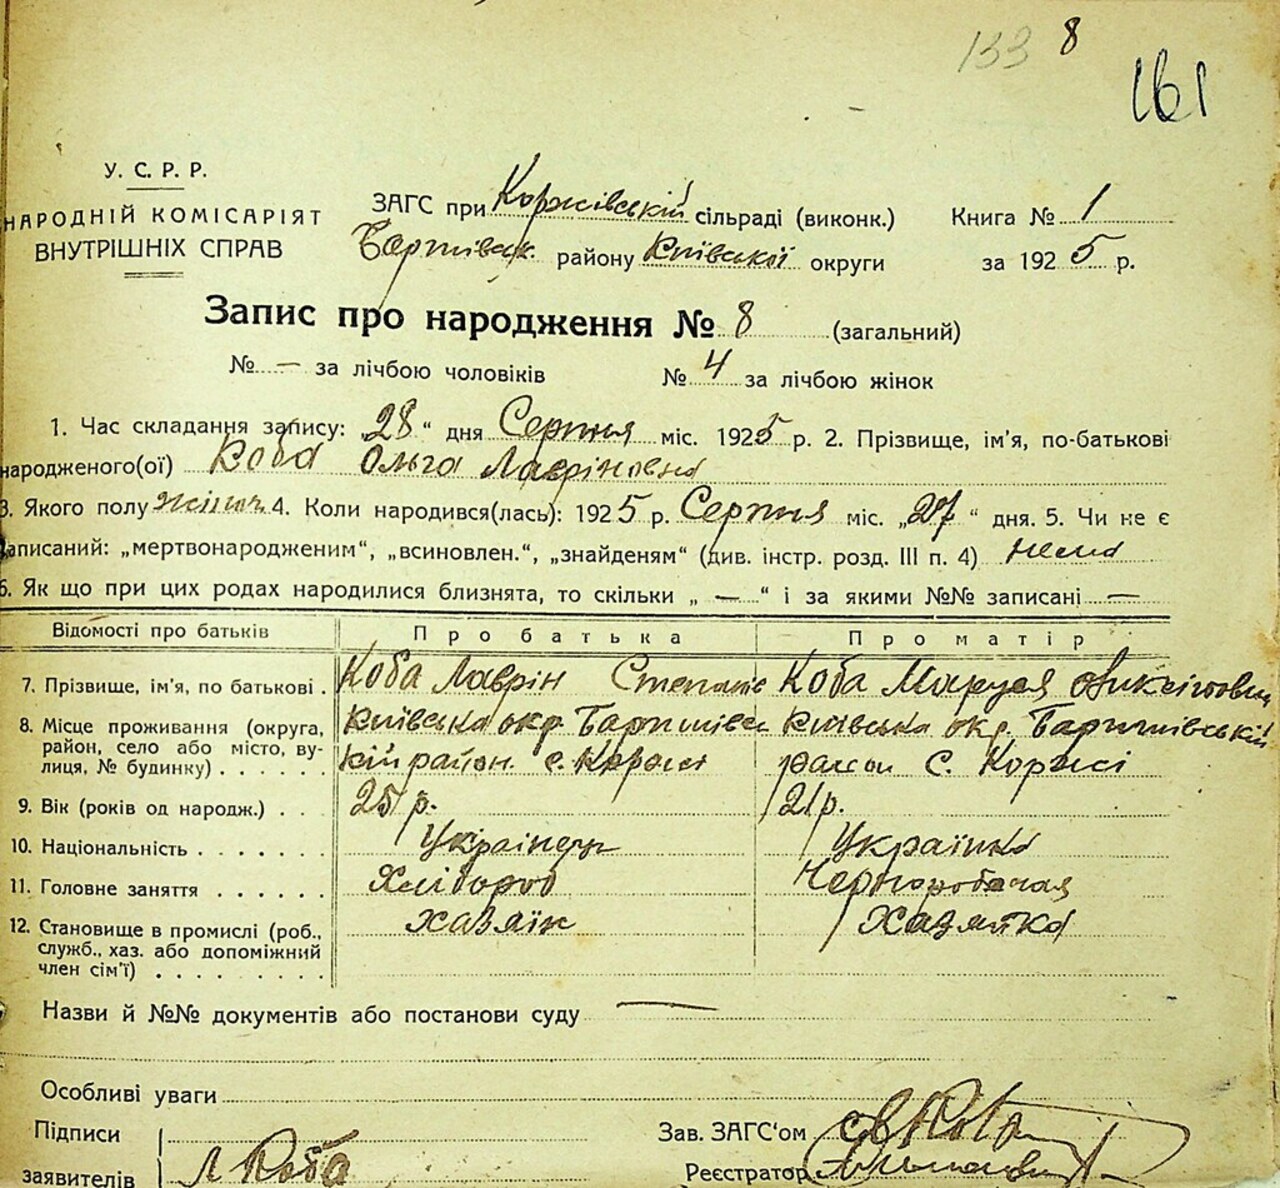 133 8
161
У. С. Р. Р.
НАРОДНІЙ КОМІСАРІЯТ
ВНУТРІШНІХ СПРАВ
ЗАГС при Коржівській сільраді (виконк.)
Баришівськ. району Київської округи
Книга № 1
за 1925 р.
Запис про народження № 8 (загальний)
№ — за лічбою чоловіків № 4 за лічбою жінок
1. Час складання запису: „28“ дня Серпня міс. 1925 р. 2. Прізвище, ім'я, по-батькові
народженого(ої) Коба Ольга Лавріновна
3. Якого полу жіноч. 4. Коли народився(лась): 1925 р. Серпня міс. „27“ дня. 5. Чи не є
записаний: „мертвонародженим“, „всиновлен.“, „знайденям“ (див. інстр. розд. III п. 4) нема
6. Як що при цих родах народилися близнята, то скільки „ — “ і за якими №№ записані —
Відомості про батьків Про батька Про матір
7. Прізвище, ім'я, по батькові . Коба Лаврін Степанов Коба Маруся
8. Місце проживання (округа, район, село або місто, вулиця, № будинку) . . . . . .
Київська окр Баришівсь
кій район с. Коржі
Київська окр. Баришівській
район с. Коржі
9. Вік (років од народж.) . . 25 р. 21 р.
10. Національність . . . . . . . Українець Українка
11. Головне заняття . . . . . . Хлібороб Чернорабочая
12. Становище в промислі (роб., служб., хаз. або допоміжний член сім'ї) . . . . . . . . . Хазяїн Хазяйка
Назви й №№ документів або постанови суду —
Особливі уваги
Підписи
заявителів Л Коба
Зав. ЗАГС'ом
Реєстратор